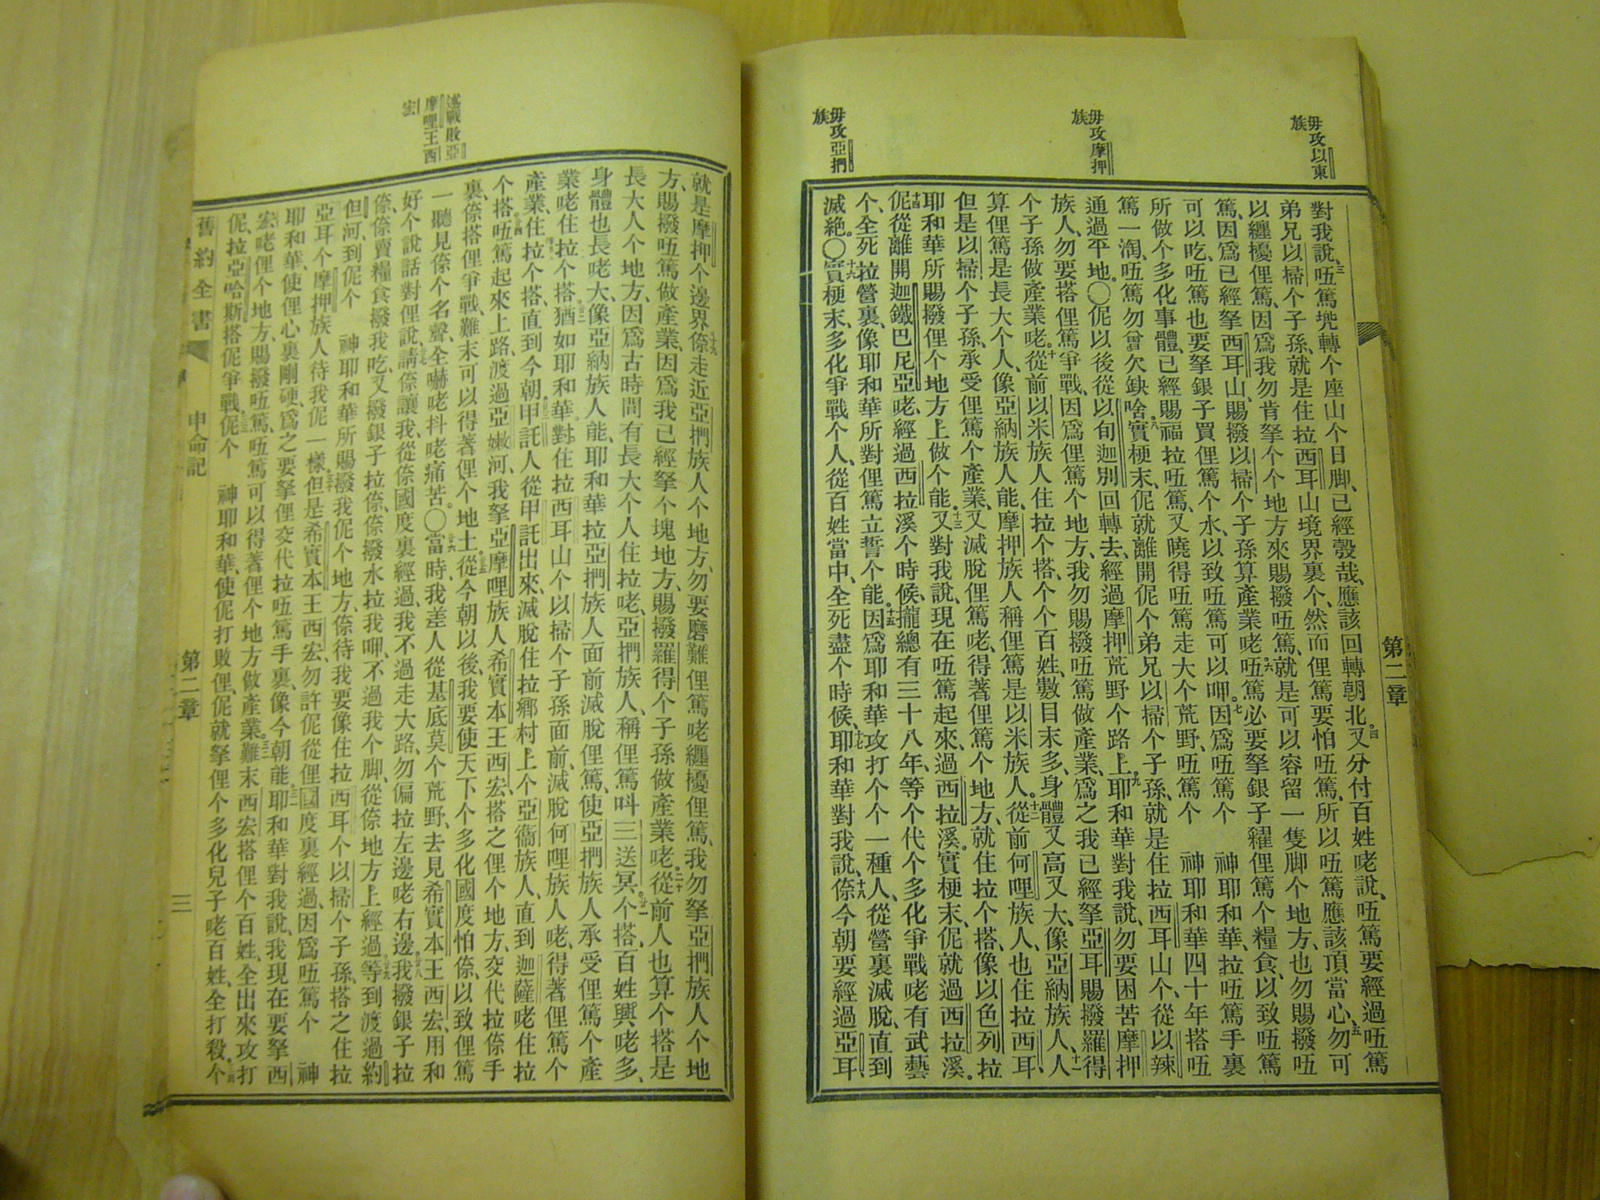 毋攻以東
族
毋攻摩押
族
毋攻亞捫
族
第二章
對我說、三㕶篤垙轉个座山个日脚、已經彀哉、應該回轉朝北。四又分付百姓咾說、㕶篤要經過㕶篤
弟兄以掃个子孫、就是住拉西耳山境界裏个、然而俚篤要怕㕶篤、所以㕶篤應該頂當心、五勿可
以纏擾俚篤、因爲我勿肯拏个个地方來賜撥㕶篤、就是可以容留一隻脚个地方、也勿賜撥㕶
篤、因爲已經拏西耳山、賜撥以掃个子孫算產業咾、六㕶篤必要拏銀子糴俚篤个糧食、以致㕶篤
可以吃、㕶篤也要拏銀子買俚篤个水、以致㕶篤可以呷。七因爲㕶篤个 神耶和華、拉㕶篤手裏
所做个多化事體、已經賜福拉㕶篤、又曉得㕶篤走大个荒野、㕶篤个 神耶和華四十年搭㕶
篤一淘、㕶篤勿曾欠缺啥、八實梗末、伲就離開伲个弟兄以掃个子孫、就是住拉西耳山个、從以辣
通過平地。〇伲以後從以旬迦別回轉去、經過摩押荒野个路上、九耶和華對我說、勿要困苦摩押
族人、勿要搭俚篤爭戰、因爲俚篤个地方、我勿賜撥㕶篤做產業、爲之我已經拏亞耳賜撥羅得
个子孫做產業咾。十從前以米族人住拉个搭、个个百姓、數目末多、身體又高又大、像亞納族人、十一人
算俚篤是長大个人、像亞納族人能、摩押族人稱俚篤是以米族人。十二從前何哩族人、也住拉西耳
但是以掃个子孫、承受俚篤个產業、又滅脫俚篤咾、得著俚篤个地方、就住拉个搭、像以色列拉
耶和華所賜撥俚个地方上做个能。十三又對我說、現在㕶篤起來、過西拉溪。實梗末、伲就過西拉溪。
十四伲從離開迦鐵巴尼亞咾、經過西拉溪个時候、攏總有三十八年、等个代个多化爭戰咾有武藝
个、全死拉營裏、像耶和華所對俚篤立誓个能。十五因爲耶和華攻打个个一種人、從營裏滅脫、直到
滅絕。〇十六實梗末、多化爭戰个人、從百姓當中、全死盡个時候、十七耶和華對我說、十八倷今朝要經過亞耳
述戰敗亞
摩哩王西
宏
就是摩押个邊界、十九倷走近亞捫族人个地方、勿要磨難俚篤咾纏擾俚篤、我勿拏亞捫族人个地
方、賜撥㕶篤做產業、因爲我已經拏个塊地方、賜撥羅得个子孫做產業咾。二十從前人也算个搭是
長大人个地方、因爲古時間有長大个人住拉咾、亞捫族人、稱俚篤呌三送冥。廿一个搭百姓興咾多、
身體也長咾大、像亞納族人能、耶和華拉亞捫族人面前滅脫俚篤、使亞捫族人承受俚篤个產
業咾、住拉个搭、廿二猶如耶和華對住拉西耳山个以掃个子孫面前、滅脫何哩族人咾、得著俚篤个
產業、住拉个搭、直到今朝、廿三甲託人從甲託出來、滅脫住拉鄉村上个亞衞族人、直到迦薩咾住拉
个搭。廿四㕶篤起來上路、渡過亞嫩河、我拏亞摩哩族人希實本王西宏搭之俚个地方、交代拉倷手
裏、倷搭俚爭戰、難末可以得著俚个地土、廿五從今朝以後、我要使天下个多化國度怕倷、以致俚篤
一聽見倷个名聲、全嚇咾抖咾痛苦。〇廿六當時、我差人從基底莫个荒野、去見希實本王西宏、用和
好个說話對俚說、廿七請倷讓我、從倷國度裏經過、我不過走大路、勿偏拉左邊咾右邊、廿八我撥銀子拉
倷、倷賣糧食撥我吃、又撥銀子拉倷、倷撥水拉我呷、不過我个脚、從倷地方上經過、廿九等到渡過約
但河到伲个 神耶和華所賜撥我伲个地方、倷待我要像住拉西耳个以掃个子孫、搭之住拉
亞耳个摩押族人待我伲一樣、三十但是希實本王西宏、勿許伲從俚國度裏經過、因爲㕶篤个 神
耶和華、使俚心裏剛硬、爲之要拏俚交代拉㕶篤手裏、像今朝能、三一耶和華對我說、我現在要拏西
宏咾俚个地方、賜撥㕶篤、㕶篤可以得著俚个地方做產業、三二難末西宏搭俚个百姓、全出來攻打
伲、拉亞哈斯搭伲爭戰、三三伲个 神耶和華、使伲打敗俚、伲就拏俚个多化兒子咾百姓、全打殺、三四个
舊約全書 申命記 第二章 三